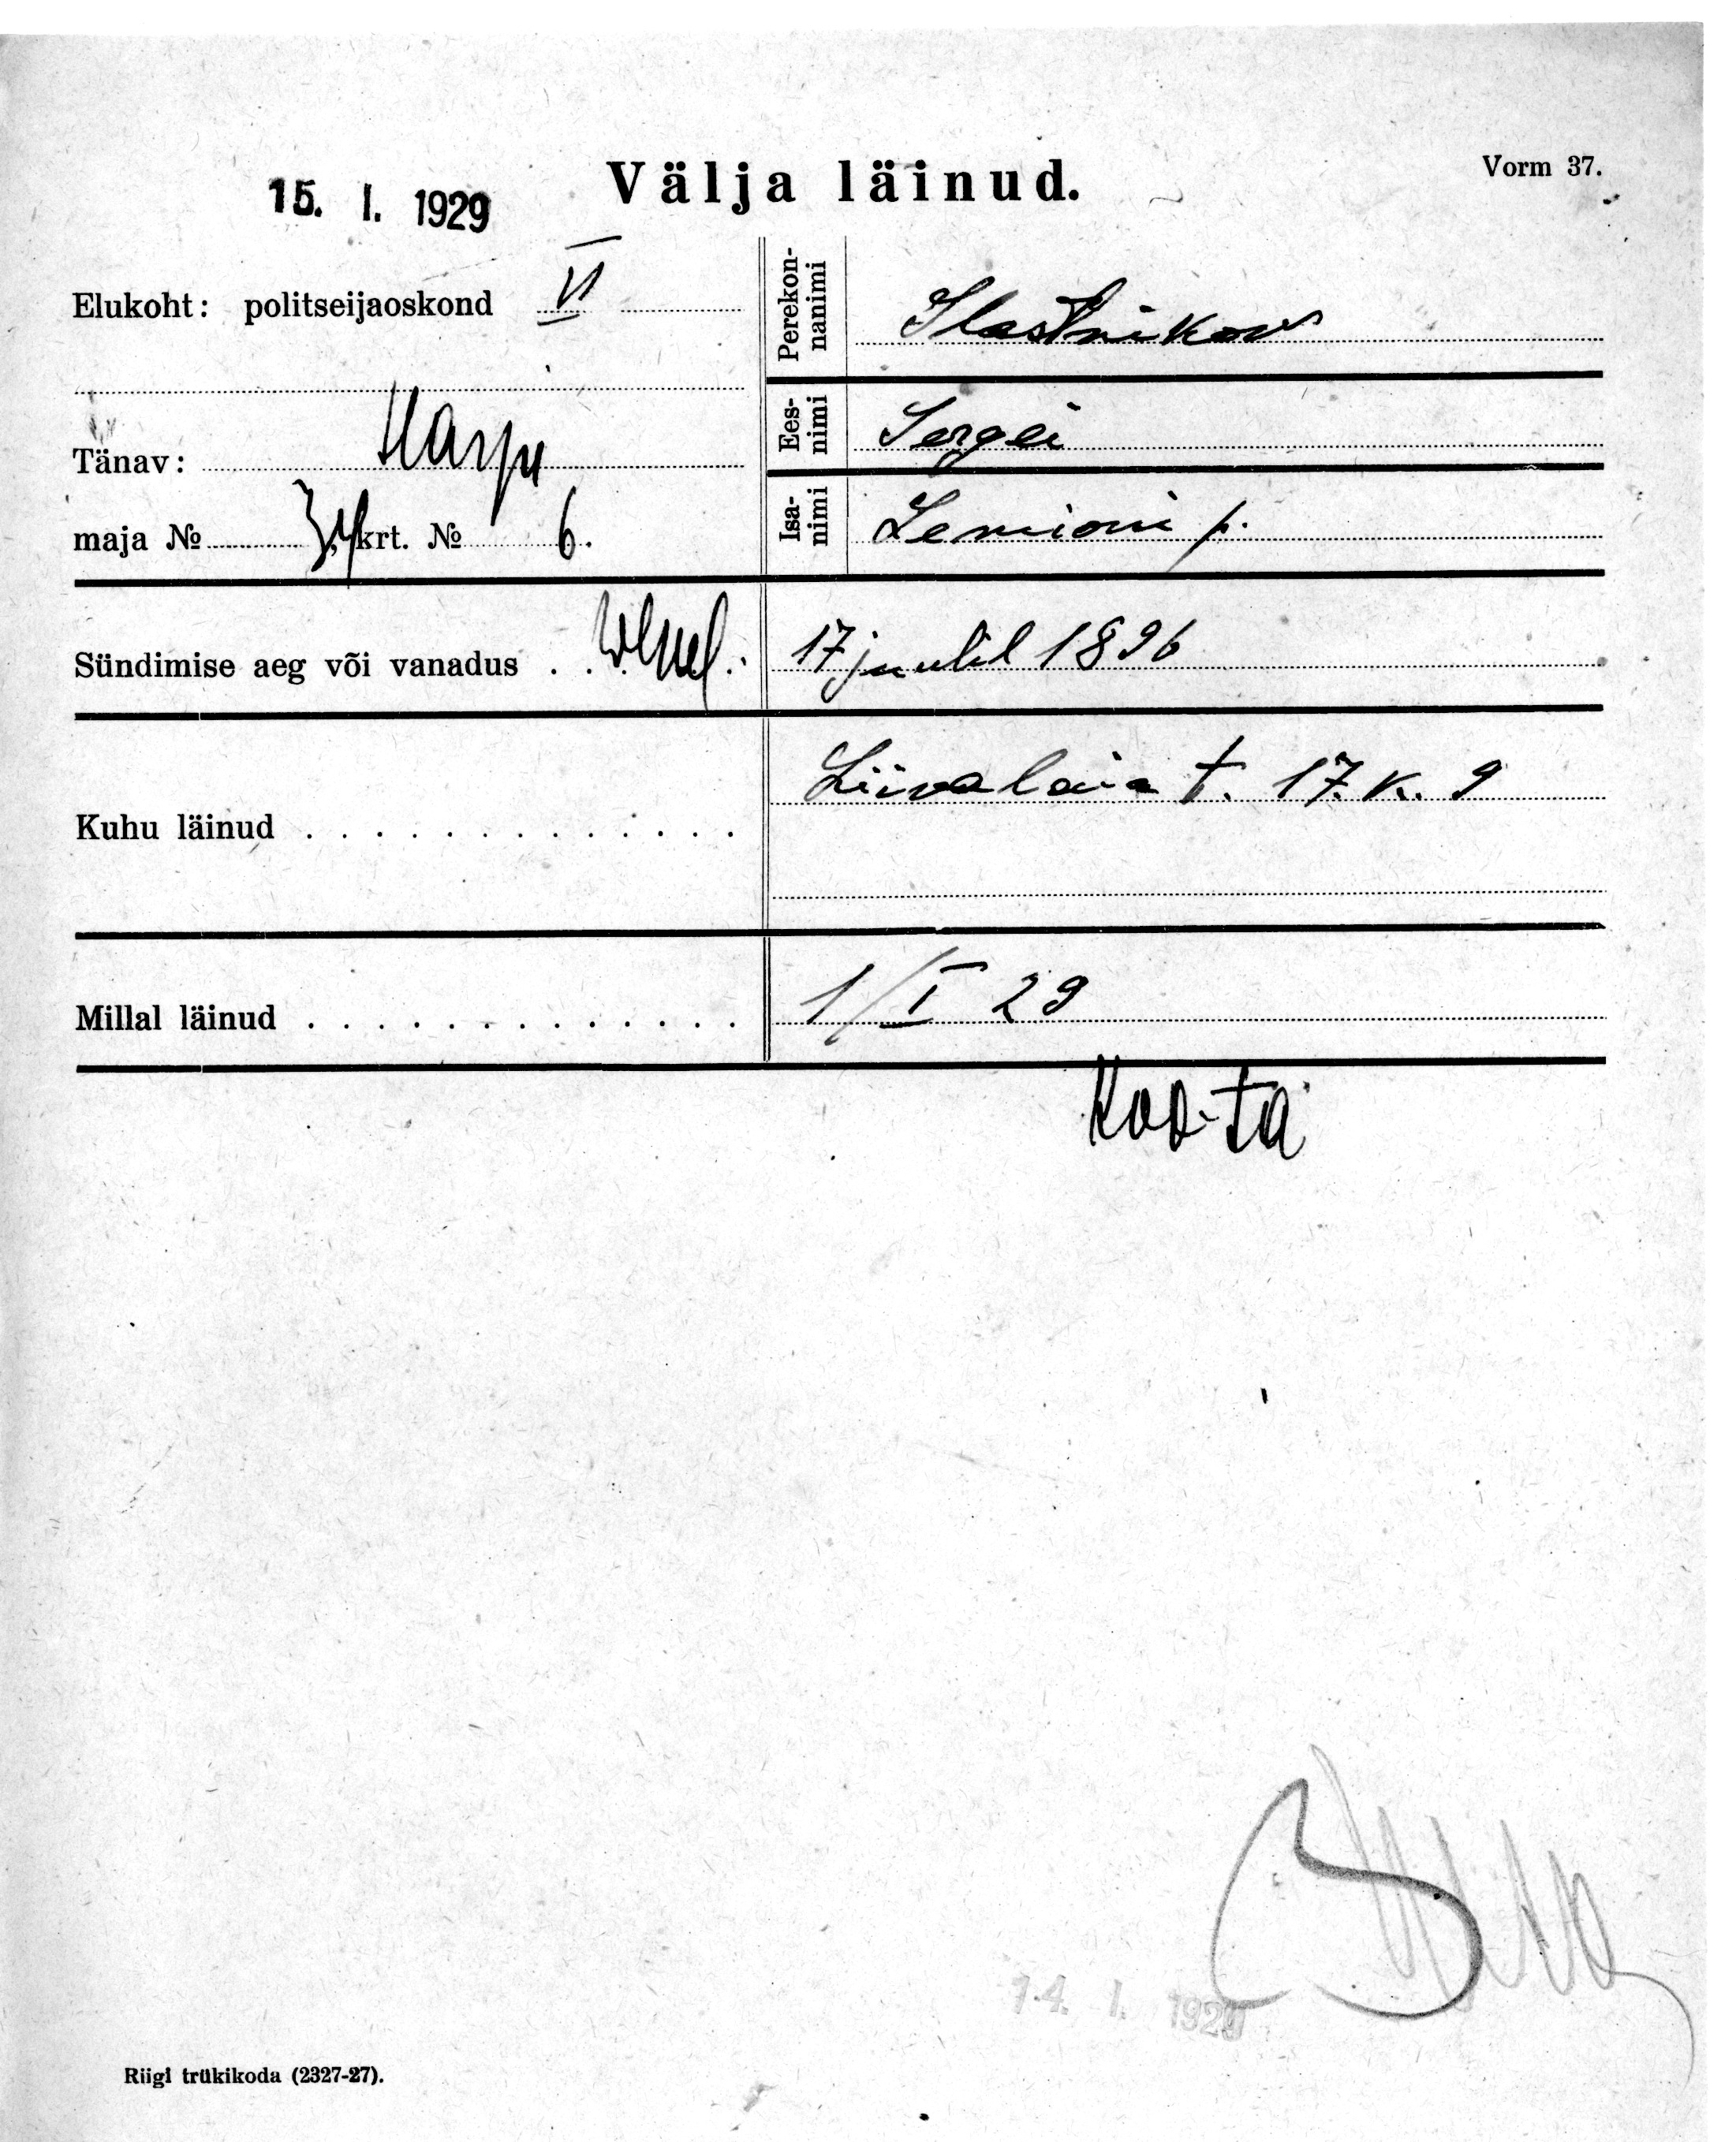 15. I. 1929
Välja läinud.
Vorm 37.
Elukoht: politseijaoskond VI
Tänav: Harju
maja № 34 krt. № 6.
Perekon-
nanimi
Slastnikov
Ees-
nimi
Sergei
Isa-
nimi
Semioni p.
Sündimise aeg või vanadus . .
17 juulil 1896
Kuhu läinud . . . . . . . . . . . . .
Liivalaia t. 17. k. 9
Millal läinud . . . . . . . . . . . . .
1/I 29
14. I. 1929
Riigi trükikoda (2327-27).